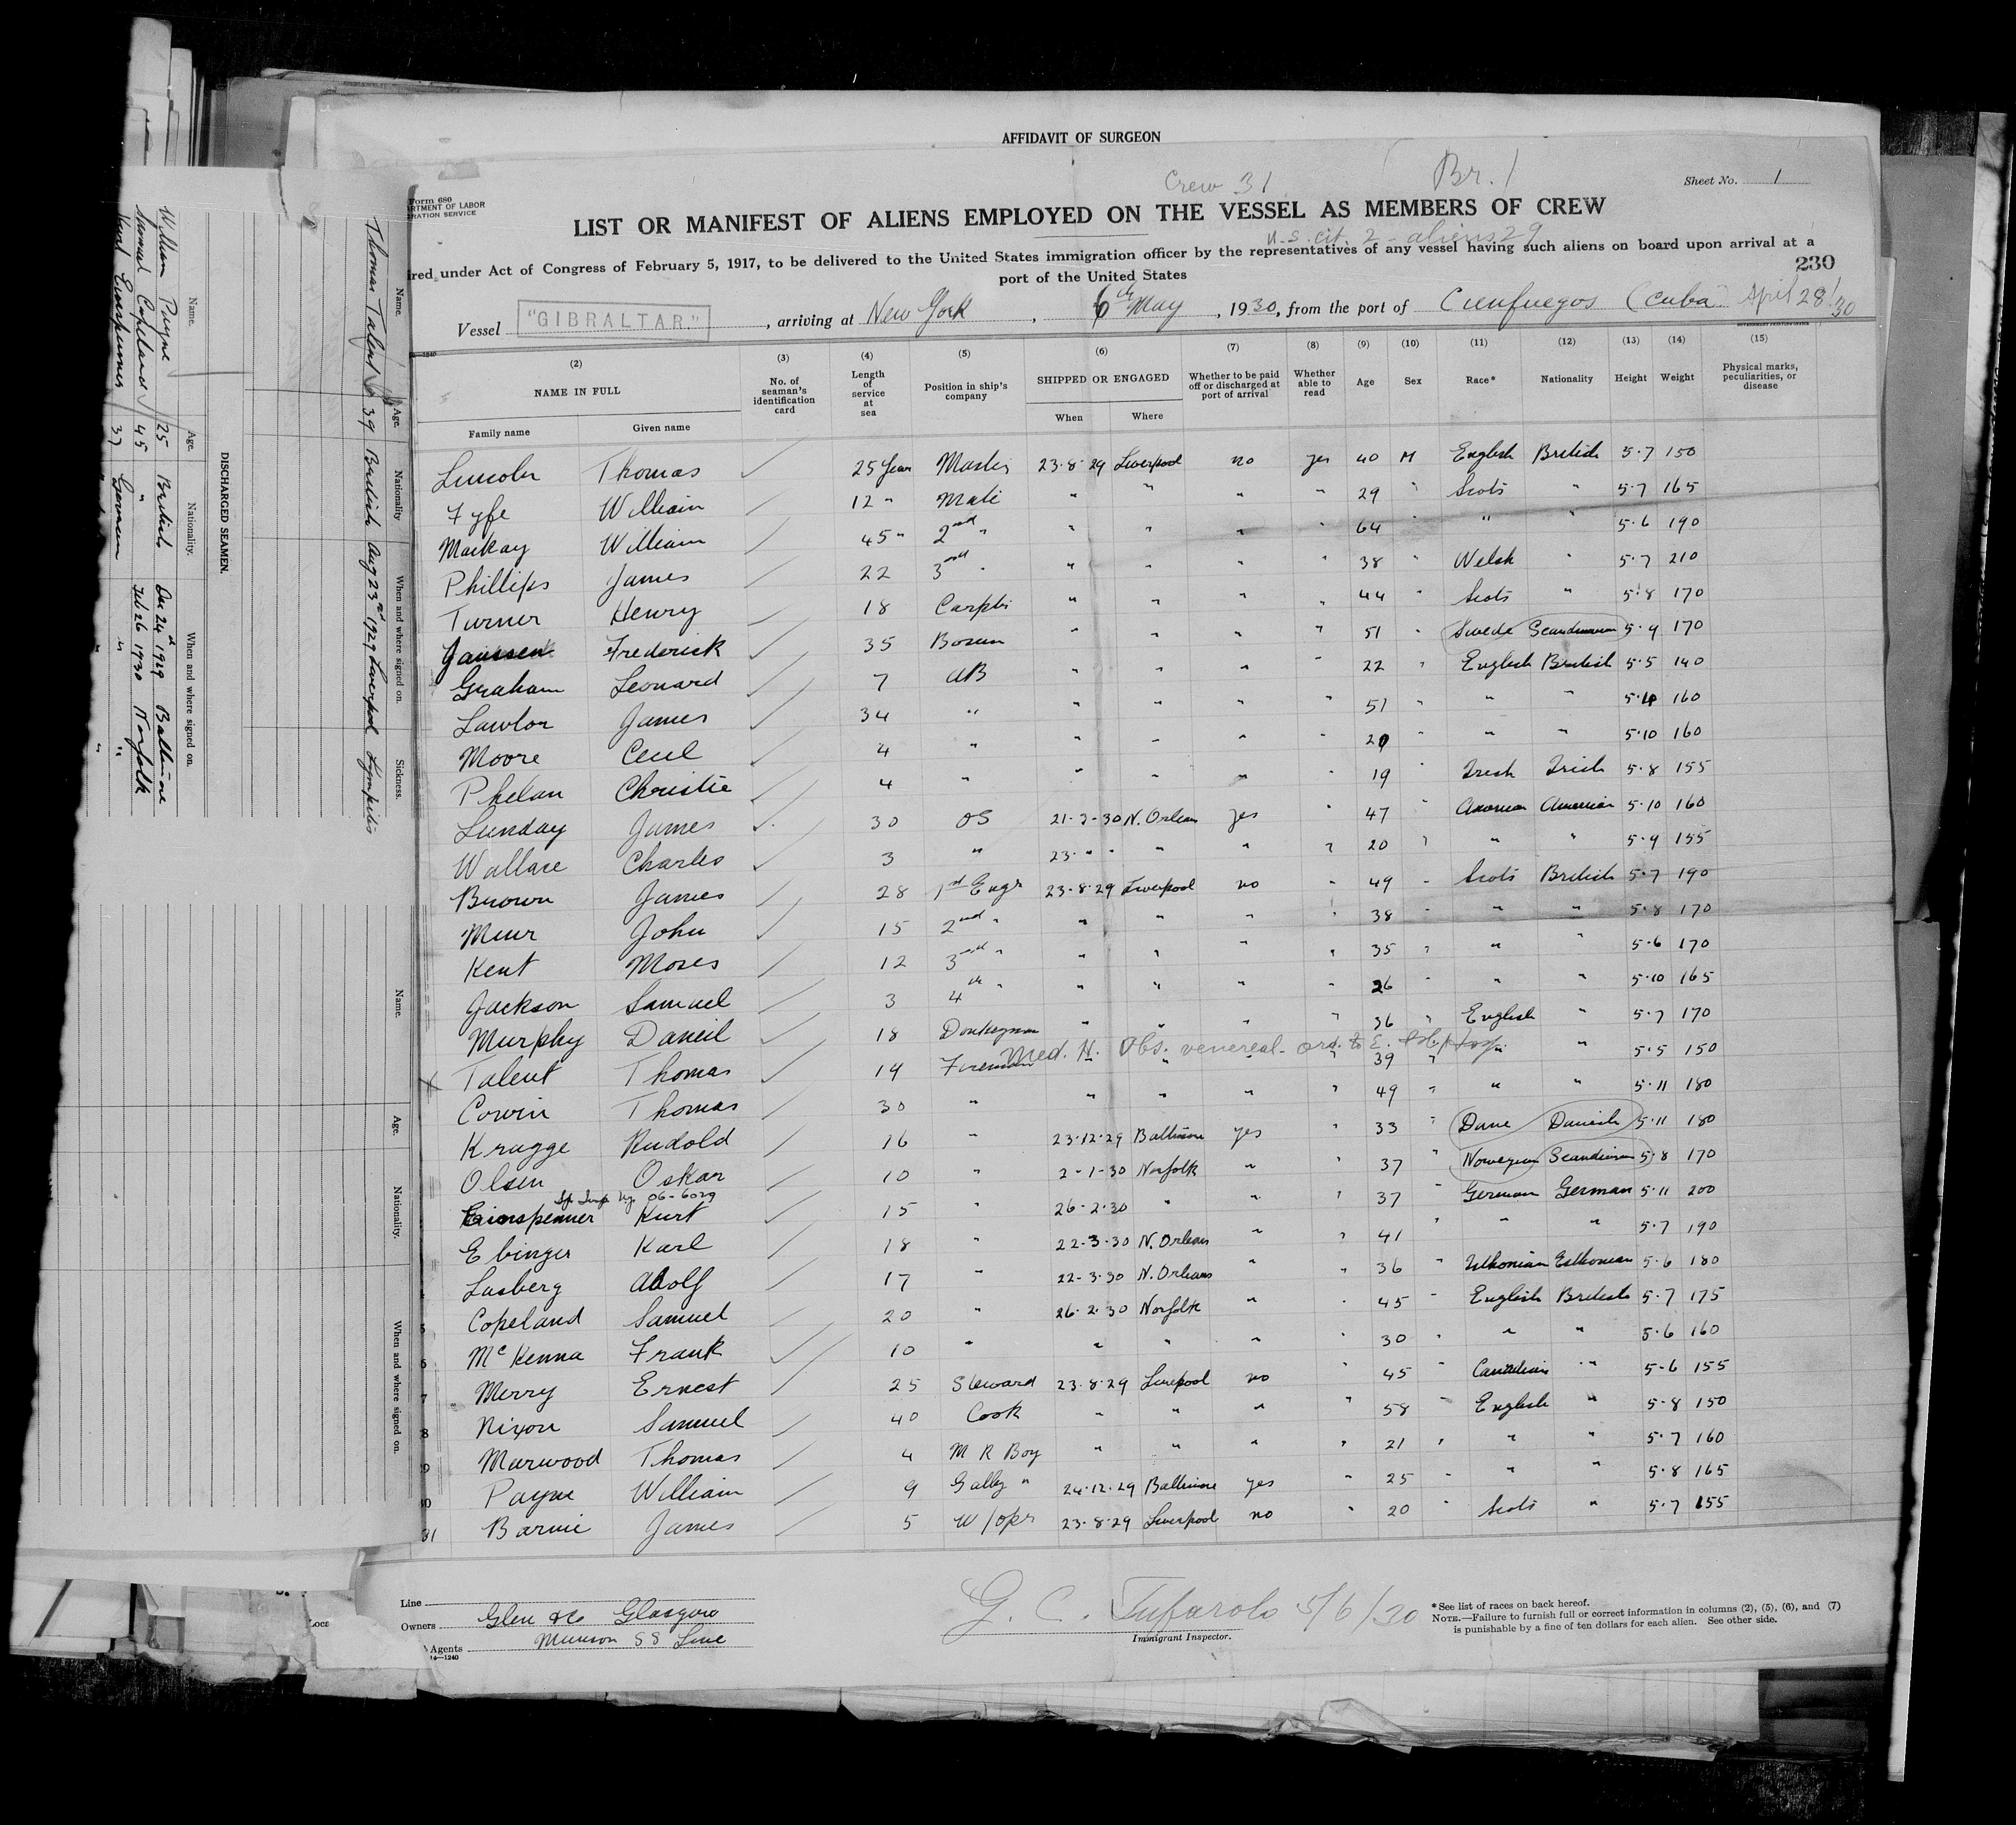 AFFIDAVIT OF SURGEON
Crew 31
Br. 1
Sheet No. 1
Form 680
ARTMENT OF LABOR
GRATION SERVICE
LIST OR MANIFEST OF ALIENS EMPLOYED ON THE VESSEL AS MEMBERS OF CREW
U.S. cit. 2 - aliens 29
ired under Act of Congress of February 5, 1917, to be delivered to the United States immigration officer by the representatives of any vessel having such aliens on board upon arrival at a
port of the United States
230
Vessel "GIBRALTAR." , arriving at New York , 6th May , 1930, from the port of Cienfuegos (Cuba) April 28/30
(2) NAME IN FULL Family name Given name
(3) No. of seaman's identification card
(4) Length of service at sea
(5) Position in ship's company
(6) SHIPPED OR ENGAGED When Where
(7) Whether to be paid off or discharged at port of arrival
(8) Whether able to read
(9) Age
(10) Sex
(11) Race*
(12) Nationality
(13) Height
(14) Weight
(15) Physical marks, peculiarities, or disease
Lincoln Thomas 25 Years Master 23·8·29 Liverpool no yes 40 M English British 5·7 150
Fyfe William 12 " Mate " " " " 29 " Scots " 5·7 165
Mackay William 45 " 2nd " " " " " 64 " " " 5·6 190
Phillips James 22 3rd " " " " " 38 " Welsh " 5·7 210
Turner Henry 18 Carptr " " " " 44 " Scots " 5·8 170
Janssen Frederick 35 Bosun " " " " 51 " Swede Scandinavian 5·9 170
Graham Leonard 7 AB " " " " 22 " English British 5·5 140
Lawlor James 34 " " " " " 51 " " " 5·4 160
Moore Cecil 4 " " " " " 20 " " " 5·10 160
Phelan Christie 4 " " " " " 19 " Irish Irish 5·8 155
Lunday James 30 OS 21-3-30 N. Orleans yes " 47 " American American 5·10 160
Wallace Charles 3 " 23· " " " " " 20 " " " 5·9 155
Brown James 28 1st Engr 23·8·29 Liverpool no " 49 " Scots British 5·7 190
Muir John 15 2nd " " " " " 38 " " " 5·8 170
Kent Moses 12 3rd " " " " " 35 " " " 5·6 170
Jackson Samuel 3 4th " " " " " 26 " " " 5·10 165
Murphy Daneil 18 Donkeyman " " " " 36 " English " 5·7 170
Med. H. Obs. venereal - ord. to E. Isl. Hosp.
Talent Thomas 19 Fireman " " " " 39 " " " 5·5 150
Corvin Thomas 30 " " " " " 49 " " " 5·11 180
Kragge Rudold 16 " 23·12·29 Baltimore yes " 33 " Dane Danish 5·11 180
Olsen Oskar 10 " 2-1-30 Norfolk " " 37 " Norwegian Scandinavian 5·8 170
06-6029
Einspenner Kurt 15 " 26·2·30 " " " 37 " German German 5·11 200
Ebinger Karl 18 " 22-3-30 N. Orleans " " 41 " " " 5·7 190
Lasberg Adolf 17 " 22-3-30 N. Orleans " " 36 " Esthonian Esthonian 5·6 180
Copeland Samuel 20 " 26·2·30 Norfolk " " 45 " English British 5·7 175
6 McKenna Frank 10 " " " " " 30 " " " 5·6 160
7 Merry Ernest 25 Steward 23·8·29 Liverpool no " 45 " Canadian " 5·6 155
8 Nixon Samuel 40 Cook " " " " 58 " English " 5·8 150
9 Marwood Thomas 4 M R Boy " " " " 21 " " " 5·7 160
30 Payne William 9 Galley " 24·12·29 Baltimore yes " 25 " " " 5·8 165
31 Barnie James 5 W/opr 23·8·29 Liverpool no " 20 " Scots " 5·7 155
Line
Owners Glen & Co Glasgow
Agents Munson SS Line
14—1240
G. C. Tufarolo 5/6/30
Immigrant Inspector.
*See list of races on back hereof.
NOTE.—Failure to furnish full or correct information in columns (2), (5), (6), and (7)
is punishable by a fine of ten dollars for each alien. See other side.
Name. Age. Nationality When and where signed on. Sickness.
Thomas Talent 39 British Aug 23rd 1929 Liverpool
Name. Age. Nationality. When and where signed on.
DISCHARGED SEAMEN.
Name. Age. Nationality. When and where signed on.
William Payne 25 British Dec 24th 1929 Baltimore
Samuel Copeland 45 " Feb 26 1930 Norfolk
Kurt Einspenner 37 German " " "